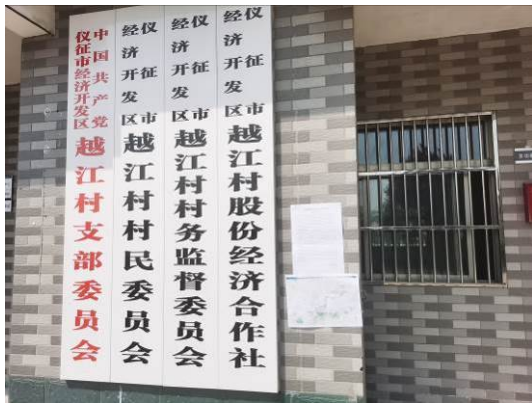 中国共产党
仪征市经济开发区
越江村支部委员会
仪征市
经济开发区
越江村村民委员会
仪征市
经济开发区
越江村村务监督委员会
仪征市
经济开发区
越江村股份经济合作社